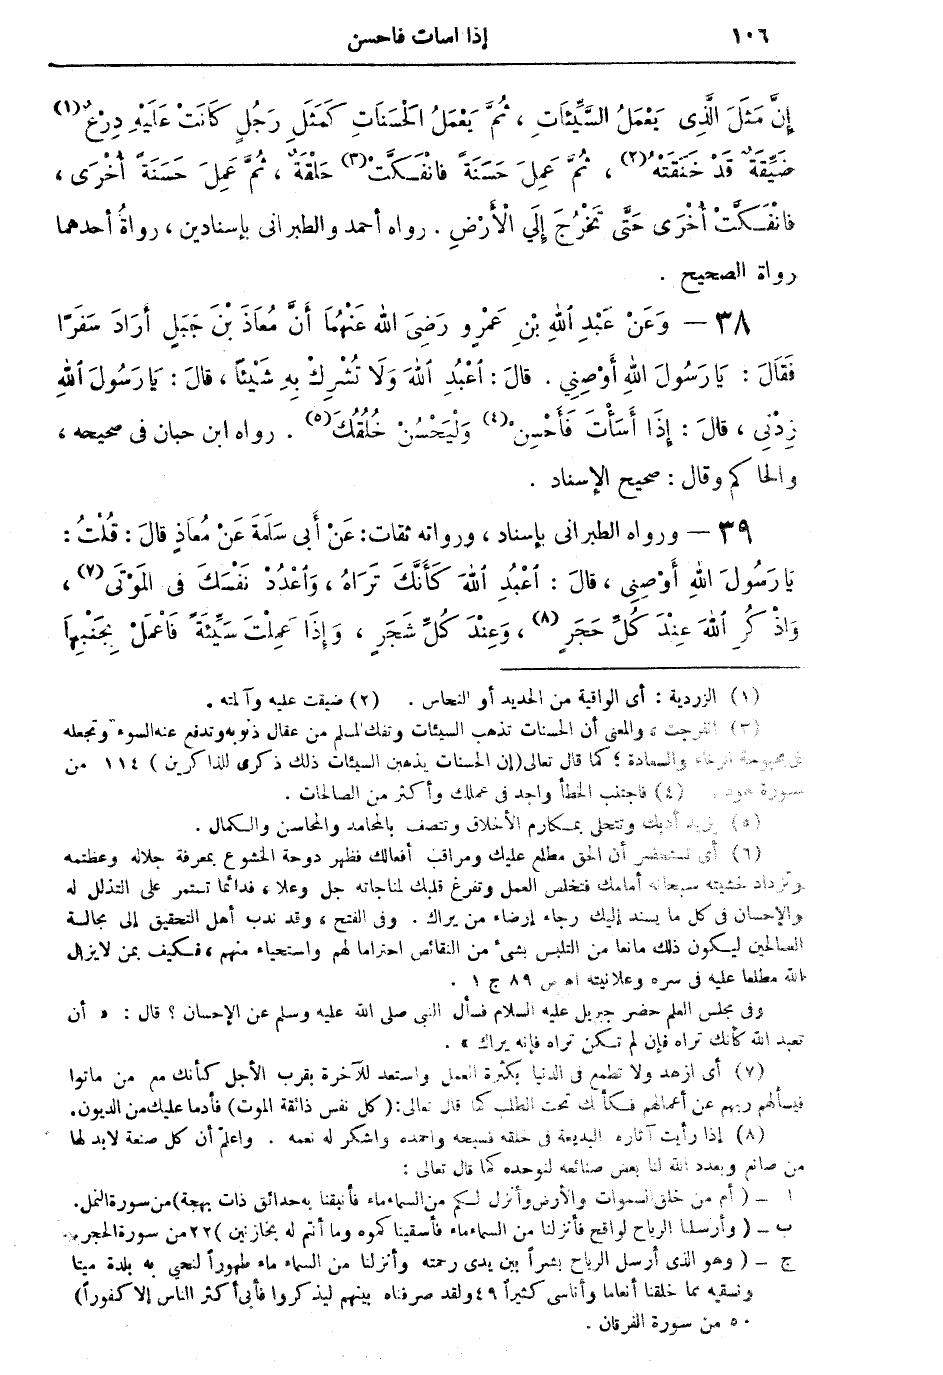 ١٠٦ إذا اسات فاحسن
إِنَّ مَثَلَ الَّذِى يَعْمَلُ السَّيِّئَاتِ ، ثُمَّ يَعْمَلُ الْحَسَنَاتِ كَمَثَلِ رَجُلٍ كَانَتْ عَلَيْهِ دِرْعٌ (١)
ضَيِّقَةٌ قَدْ خَنَقَتْهُ (٢) ، ثُمَّ عَمِلَ حَسَنَةً فَانْفَكَّتْ (٣) حَلْقَةٌ ، ثُمَّ عَمِلَ حَسَنَةً أُخْرَى ،
فَانْفَكَّتْ أُخْرَى حَتَّى تَخْرُجَ إِلَي الْأَرْضِ . رواه أحمد والطبرانى بإسنادين ، رواةُ أحدهما
رواة الصحيح .
٣٨ — وَعَنْ عَبْدِ اللهِ بْنِ عَمْرٍو رَضِىَ الله عَنْهُمَا أَنَّ مُعَاذَ بْنَ جَبَلٍ أَرَادَ سَفَرًا
فَقَالَ : يَا رَسُولَ اللهِ أَوْصِنِي . قالَ : اُعْبُدِ اللهَ وَلَا تُشْرِكْ بِهِ شَيْئًا ، قالَ : يَا رَسُولَ اللهِ
زِدْنِى ، قالَ : إِذَا أَسَأْتَ فَأَحْسِنْ (٤) وَلْيَحْسُنْ خُلُقُكَ (٥) . رواه ابن حبان فى صحيحه ،
والحاكم وقال : صحيح الإسناد .
٣٩ — ورواه الطبرانى بإسناد ، ورواته ثقات : عَنْ أَبى سَلَمَةَ عَنْ مُعَاذٍ قالَ : قُلْتُ :
يَا رَسُولَ اللهِ أَوْصِنِى ، قالَ : اُعْبُدِ اللهَ كَأَنَّكَ تَرَاهُ ، وَاُعْدُدْ نَفْسَكَ فى المَوْتَى (٧) ،
وَاذْكُرِ اللهَ عِنْدَ كُلِّ حَجَرٍ (٨) ، وَعِنْدَ كُلِّ شَجَرٍ ، وَإِذَا عَمِلْتَ سَيِّئَةً فَاعْمَلْ بِجَنْبِهَا
(١) الزردية : أى الواقية من الحديد أو النحاس . (٢) ضيقت عليه وآلمته .
(٣) انفرجت ، والمعنى أن الحسنات تذهب السيئات وتفك المسلم من عقال ذنوبه وتدفع عنه السوء وتجعله
فى بحبوحة الرخاء والسعادة ؛ كما قال تعالى (إن الحسنات يذهبن السيئات ذلك ذكرى للذاكرين ) ١١٤ من
سورة هود . (٤) فاجتنب الخطأ واجد فى عملك وأكثر من الصالحات .
(٥) يزيد أدبك وتتحلى بمكارم الأخلاق وتتصف بالمحامد والمحاسن والكمال .
(٦) أى تستحضر أن الحق مطلع عليك ومراقب أفعالك فظهر دوحة الخشوع بمعرفة جلاله وعظمته
وتزداد خشيته سبحانه أمامك فتخلص العمل وتفرغ قلبك لمناجاته جل وعلا ، فدائما تستمر على التذلل له
والإحسان فى كل ما يسند إليك رجاء إرضاء من يراك . وفى الفتح ، وقد ندب أهل التحقيق إلى مجالسة
الصالحين ليكون ذلك مانعا من التلبس بشىء من النقائص احتراما لهم واستحياء منهم ، فكيف بمن لا يزال
الله مطلعا عليه فى سره وعلانيته اه ص ٨٩ ج ١ .
وفى مجلس العلم حضر جبريل عليه السلام فسأل النبى صلى الله عليه وسلم عن الإحسان ؟ قال : « أن
تعبد الله كأنك تراه فإن لم تكن تراه فإنه يراك » .
(٧) أى ازهد ولا تطمع فى الدنيا بكثرة العمل واستعد للآخرة بقرب الأجل كأنك مع من ماتوا
فيسألهم ربهم عن أعمالهم فكأنك تحت الطلب كما قال تعالى : (كل نفس ذائقة الموت) فأدما عليك من الديون .
(٨) إذا رأيت آثاره البديعة فى خلقه فسبحه واحمده واشكر له نعمه . واعلم أن كل صنعة لابد لها
من صانع ويعدد الله لنا بعض صنائعه لنوحده كما قال تعالى :
ا — ( أم من خلق السموات والأرض وأنزل لكم من السماء ماء فأنبتنا به حدائق ذات بهجة) من سورة النمل .
ب — ( وأرسلنا الرياح لواقح فأنزلنا من السماء ماء فأسقيناكموه وما أنتم له بخازنين ) ٢٢ من سورة الحجر .
ج — ( وهو الذى أرسل الرياح بشراً بين يدى رحمته وأنزلنا من السماء ماء طهوراً لنحي به بلدة ميتا
ونسقيه مما خلقنا أنعاما وأناسى كثيراً ٤٩ ولقد صرفناه بينهم ليذكروا فأبى أكثر الناس إلا كفوراً)
٥٠ من سورة الفرقان .